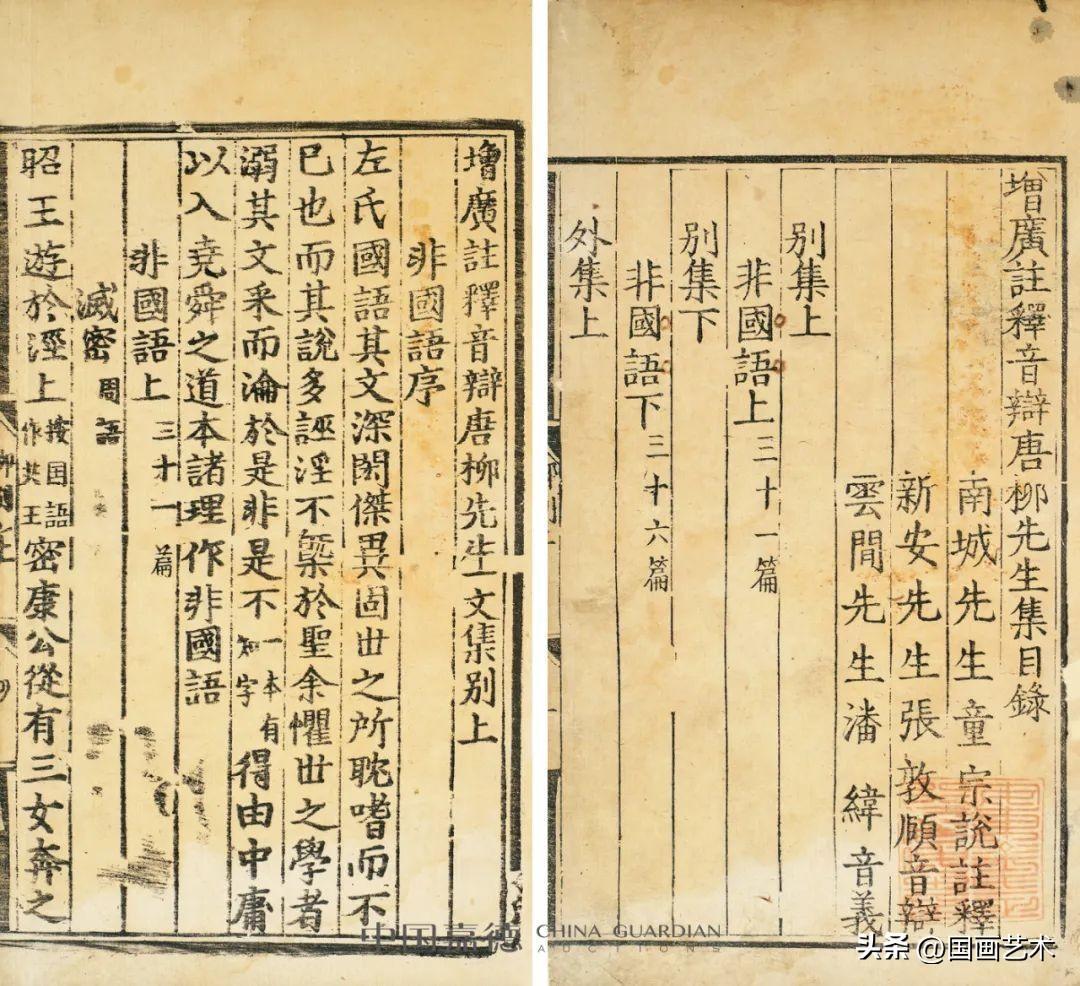 增廣註釋音辯唐柳先生集目錄
南城先生童宗說註釋
新安先生張敦頤音辯
雲閒先生潘緯音義
別集上
非國語上三十一篇
別集下
非國語下三十六篇
外集上
增廣註釋音辯唐柳先生文集別上
非國語序
左氏國語其文深閎傑異固世之所耽嗜而不
已也而其說多誣淫不槩於聖余懼世之學者
溺其文采而淪於是非是不一本有知字得由中庸
以入堯舜之道本諸理作非國語
非國語上三十一篇
滅密周語
昭王遊於涇上按国語作共王密康公從有三女奔之
中国嘉德 CHINA GUARDIAN
AUCTIONS
头条 @国画艺术